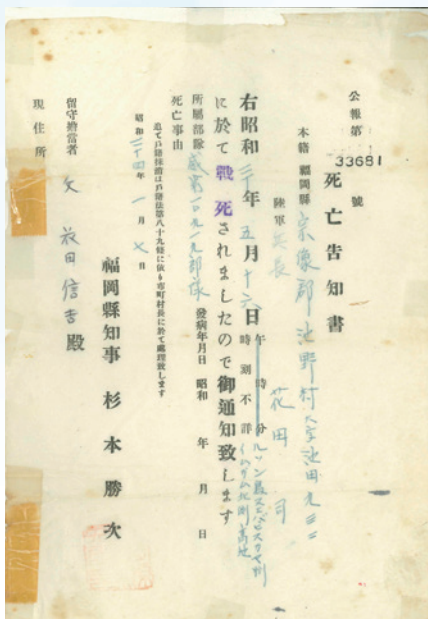 公報第 33681 號
死亡告知書
本籍 福岡縣 宗像郡池野村大字池田九三三
陸軍兵長 花田 司
右昭和二十年五月十六日 午 時 分 時刻不詳 ルソン島
に於て戰死されましたので御通知致します
所屬部隊 威第一〇九一九部隊 發病年月日 昭和 年 月 日
死亡事由
追て戸籍抹消は戸籍法第八十九條に依り市町村長に於て處理致します
昭和二十四年一月七日
福岡縣知事 杉本勝次
留守擔當者 父 花田信吉殿
現住所